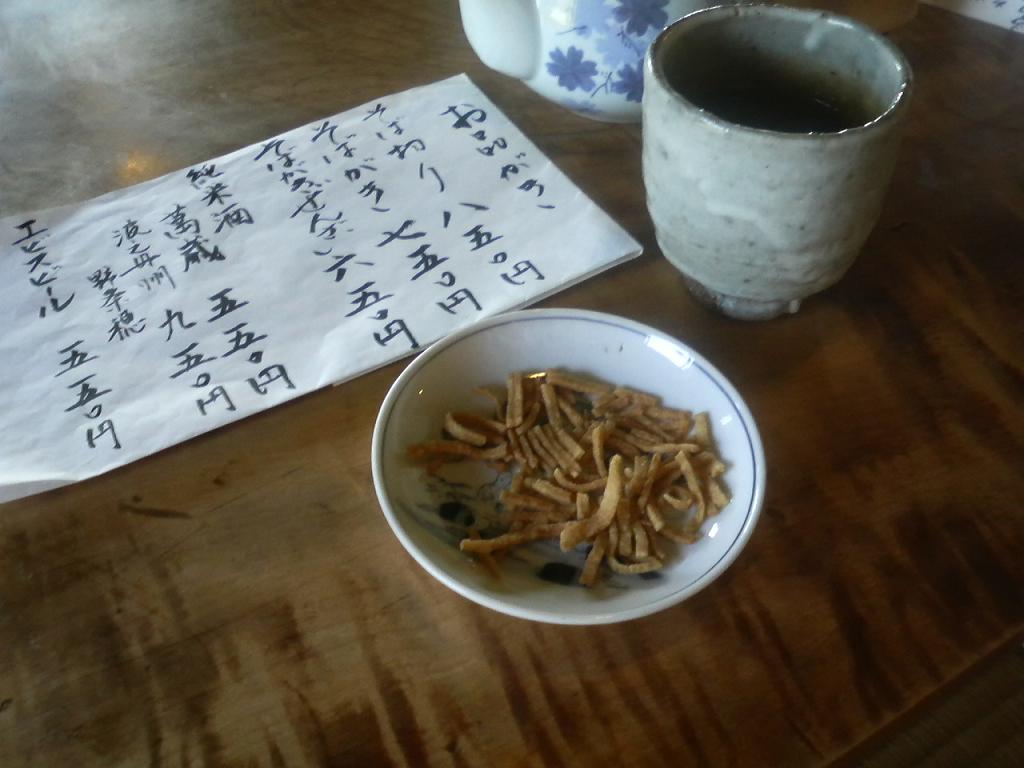 お品がき
そば切り 八五〇円
そばがき 七五〇円
そばがきぜんざい 六五〇円
純米酒
萬歳 五五〇円
波之丹州 九五〇円
野条穂
エビスビール 五五〇円